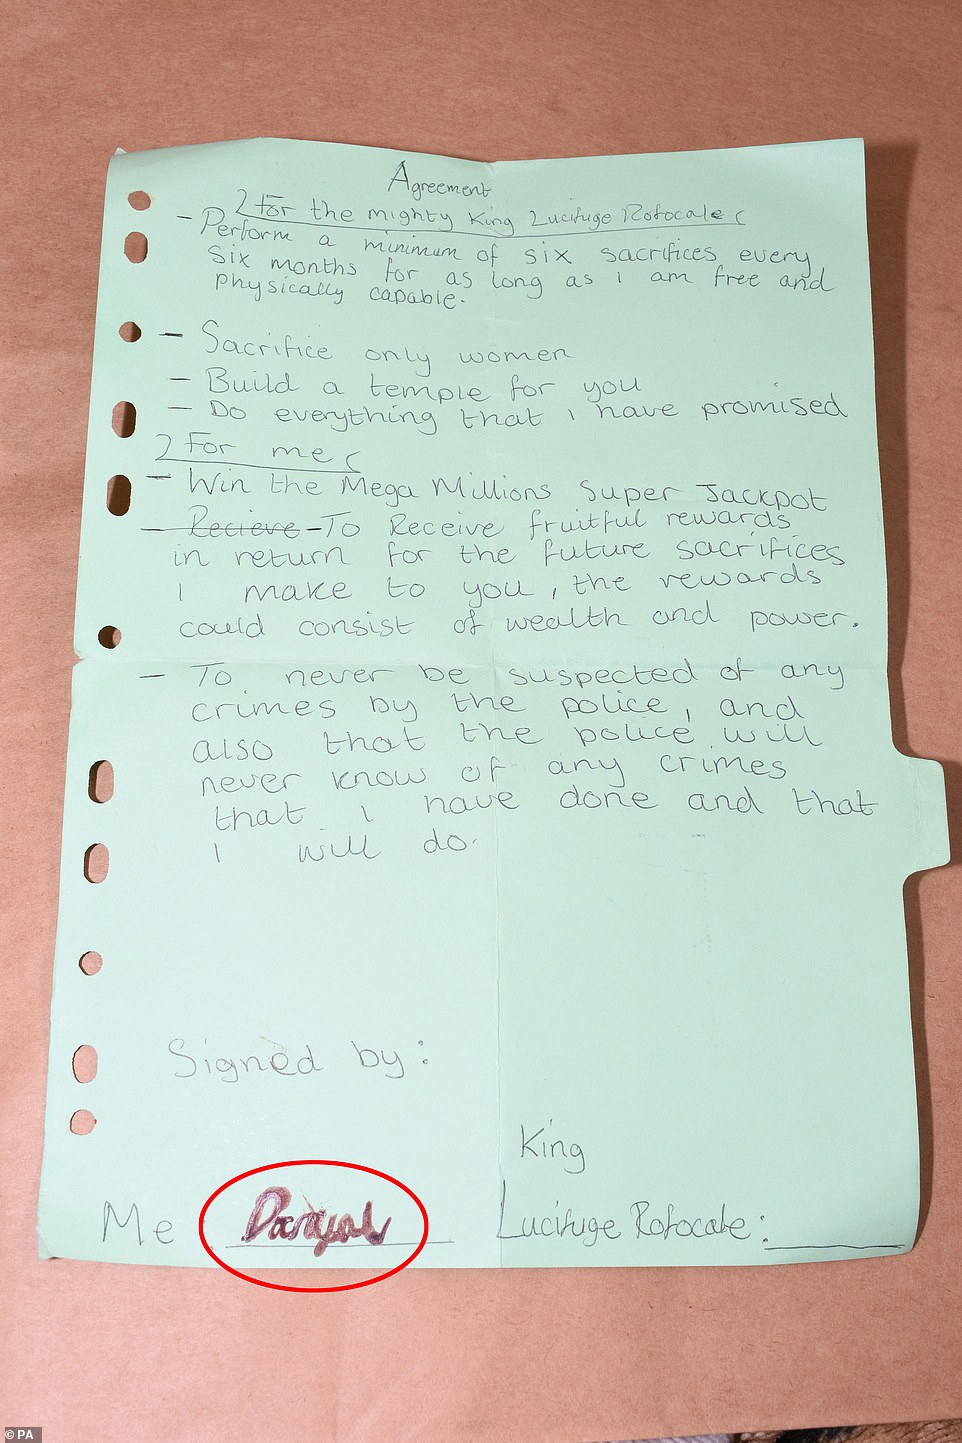 Agreement
For the mighty King Lucifuge Rofocale
- Perform a minimum of six sacrifices every
six months for as long as I am free and
physically capable.
- Sacrifice only women
- Build a temple for you
- Do everything that I have promised
For me
- Win the Mega Millions Super Jackpot
- Recieve - To Receive fruitful rewards
in return for the future sacrifices
I make to you, the rewards
could consist of wealth and power.
- To never be suspected of any
crimes by the police, and
also that the police will
never know of any crimes
that I have done and that
I will do.
Signed by:
King
Me Lucifuge Rofocale:
© PA